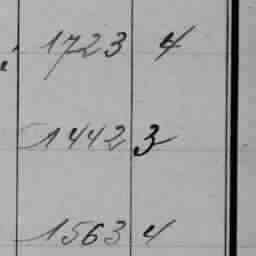 1723 4
1442 3
1563 4